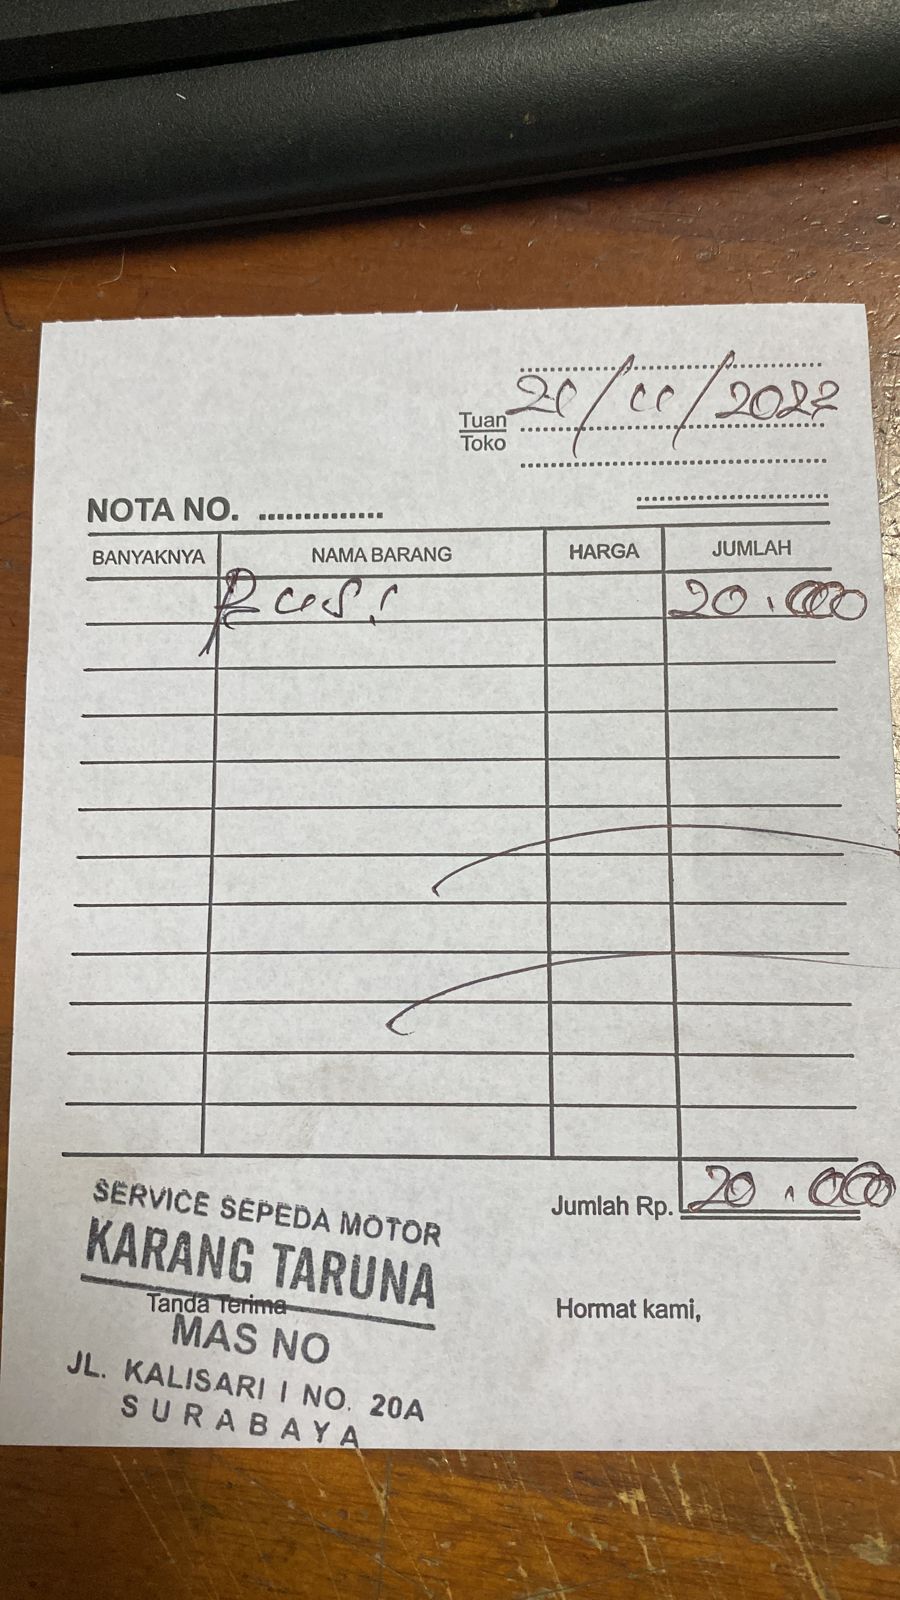 21/11/2022
Tuan
Toko
NOTA NO. ..............
BANYAKNYA NAMA BARANG HARGA JUMLAH
20.000
Jumlah Rp. 20.000
SERVICE SEPEDA MOTOR
KARANG TARUNA
Tanda Terima Hormat kami,
MAS NO
JL. KALISARI I NO. 20A
SURABAYA